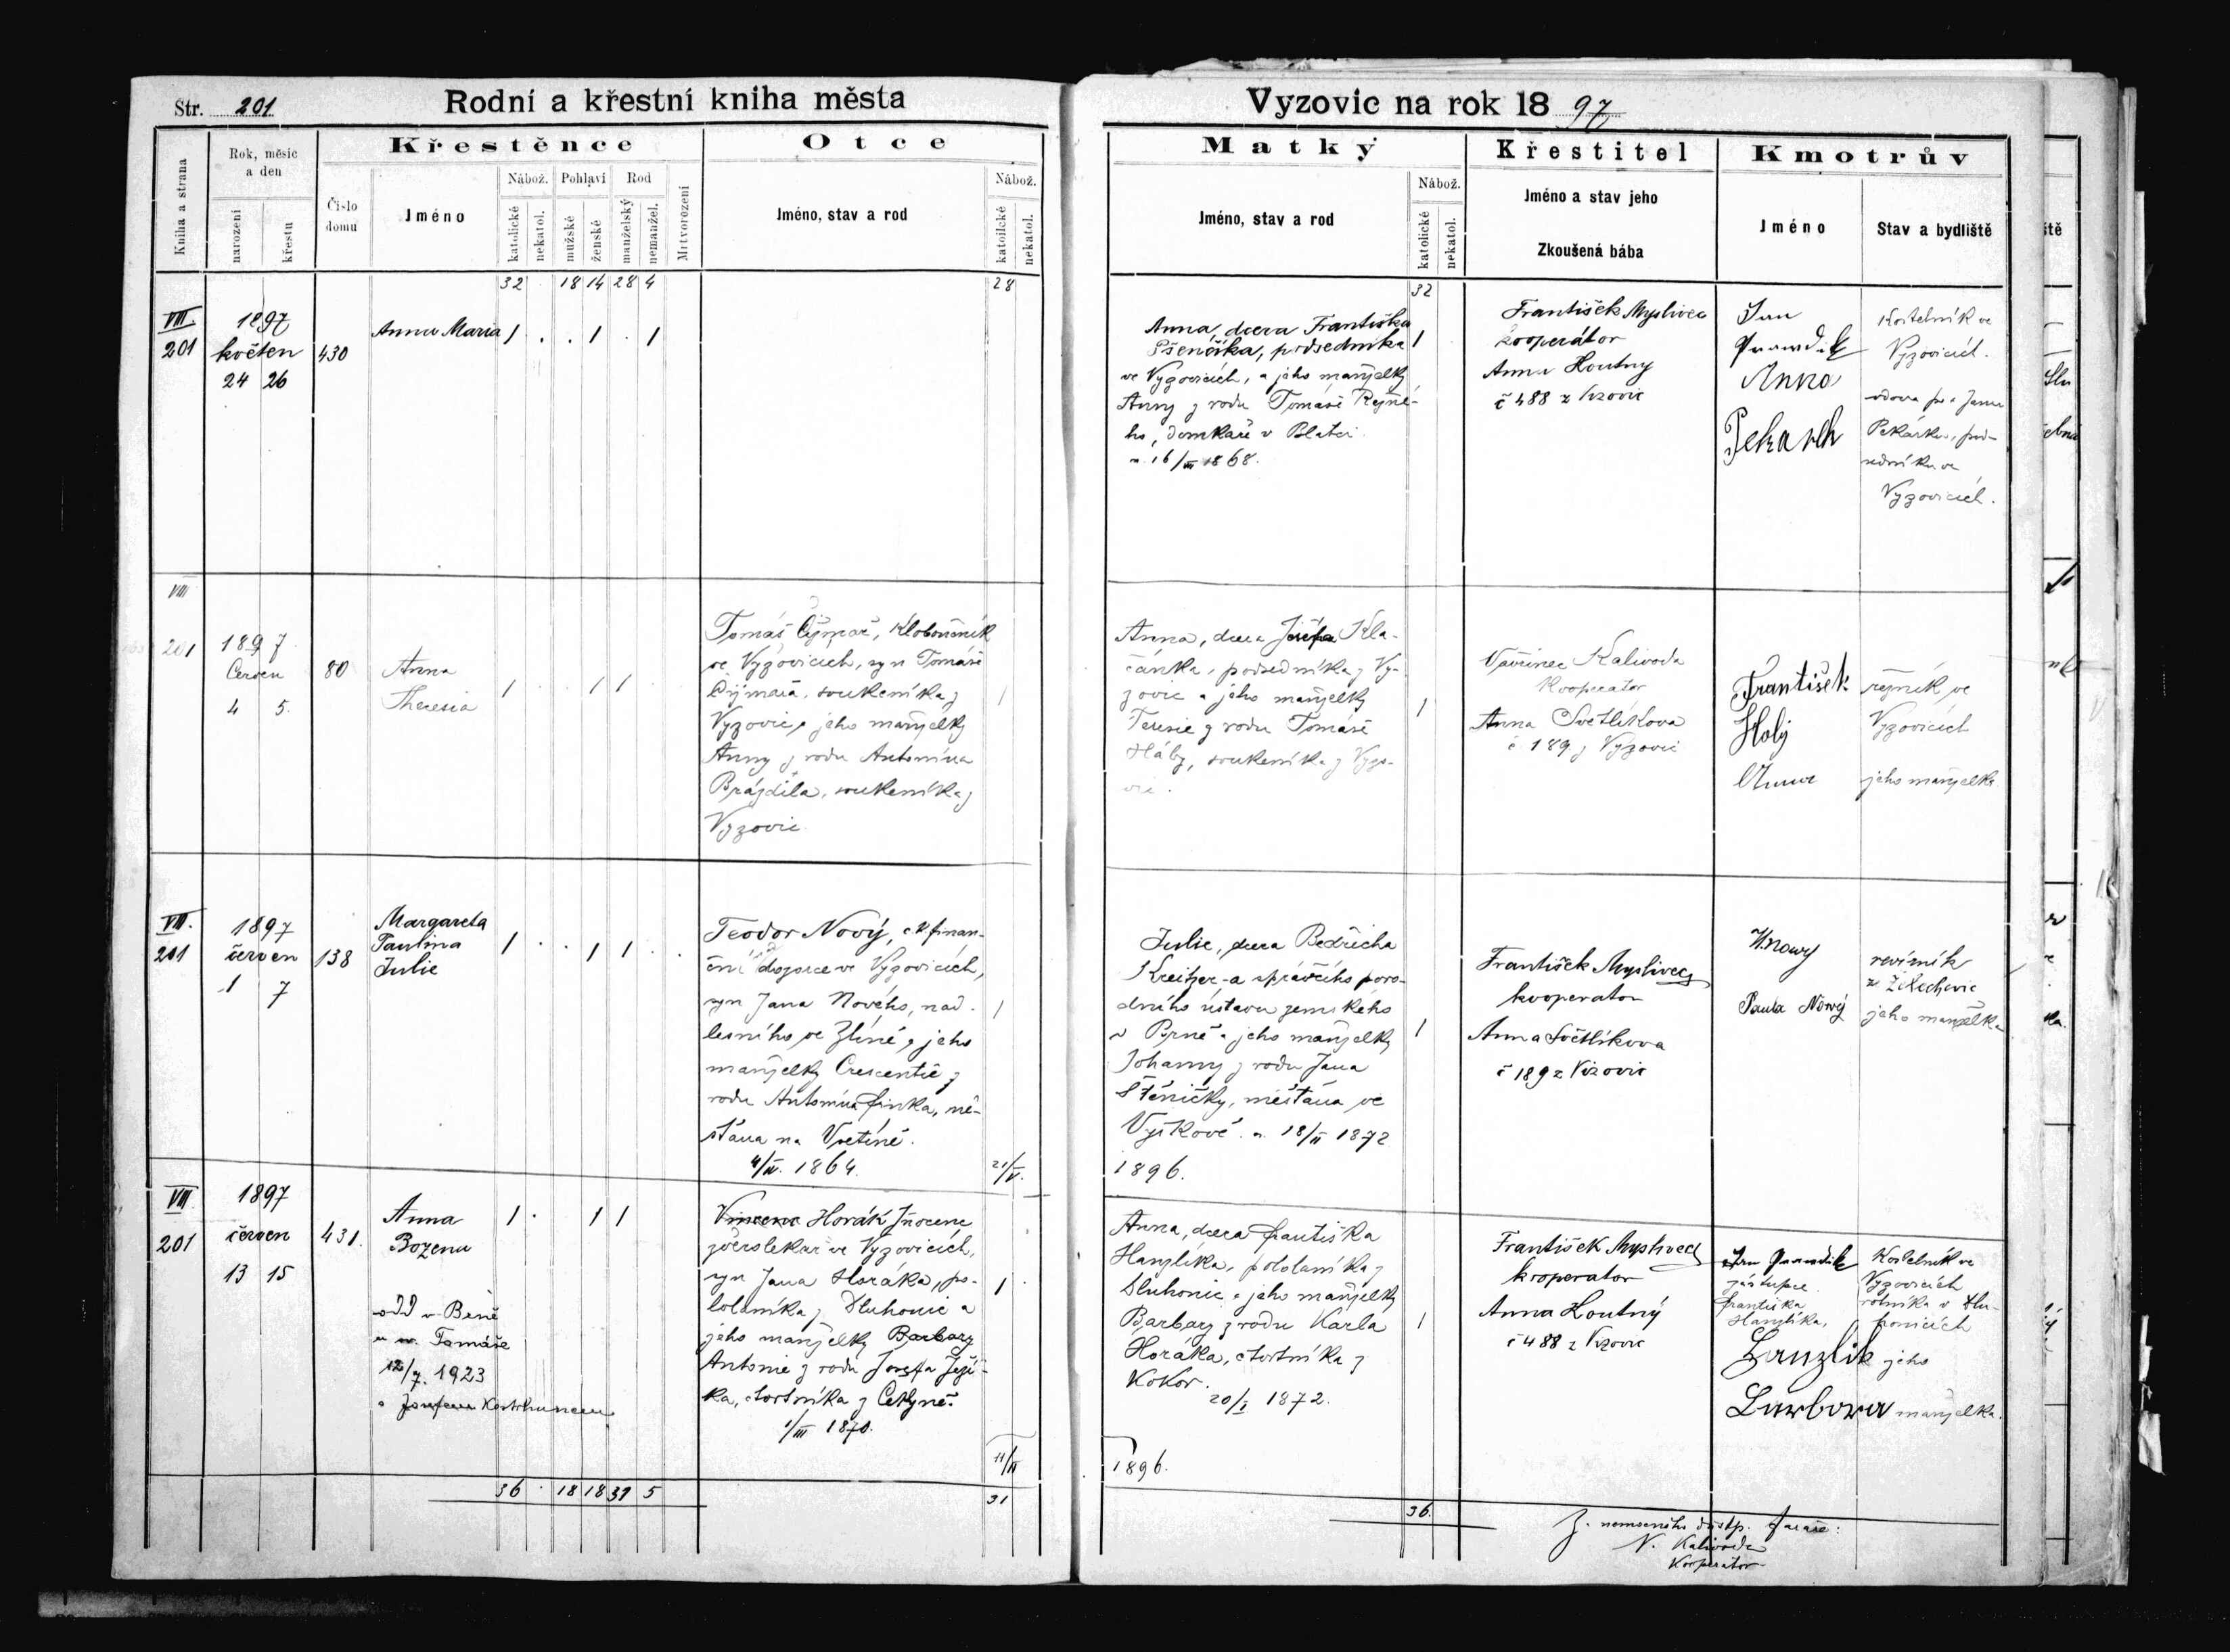 Str. 201
Rodní a křestní kniha města
Vyzovic na rok 1897
Kniha a strana
Rok, měsíc a den
narození
křestu
Číslo domu
Křestěnce
Jméno
Nábož.
katolické
nekatol.
Pohlaví
mužské
ženské
Rod
manželský
nemanžel.
Mrtvorození
Otce
Jméno, stav a rod
Nábož.
katolické
nekatol.
Matky
Jméno, stav a rod
Nábož.
katolické
nekatol.
Křestitel
Jméno a stav jeho
Zkoušená bába
Kmotrův
Jméno
Stav a bydliště
32 . 18 14 28 4
28
32
VIII.
201
1897
květen
24 26
430
Anna Maria
1 . . 1 . 1
Anna, dcera Františka
Pšenčíka, podsedníka
ve Vyzovicích, a jeho manželky
Anny z rodu Tomáše
ho, domkaře v
n. 16/III 1868.
1
František Myslivec
kooperátor
Anna Houtny
č 488 z Vizovic
Jan
Anna
Pekarek
Kostelník ve
Vyzovicích.
vdova po Janu
Pekárku, pod-
sedníku ve
Vyzovicích.
VIII
201
1897
Červen
4 5.
80
Anna
Theresia
1 . 1 1
Tomáš Čyžmař, Kloboučník
ve Vyzovicích, syn Tomáše
Čyžmařa, soukeníka z
Vyzovic a jeho manželky
Anny z rodu Antonína
Brázdila, soukeníka z
Vyzovic
1
Anna, dcera Josefa Kla-
čánka, podsedníka z Vy-
zovic a jeho manželky
Teresie z rodu Tomáše
Háby, soukeníka z Vyzo-
vic.
1
Vavřinec Kalivoda
Kooperator
Anna Světlíkova
č 189 z Vyzovic
František
Holý
Anna
řezník ve
Vyzovicích
jeho manželka
VIII.
201
1897
červen
1 7
138
Margareta
Paulina
Julie
1 . . 1 1 .
Teodor Nový, c k finan-
ční dozorce ve Vyzovicích,
syn Jana Nového, nad-
lesního ve Zlíně a jeho
manželky Crescentie z
rodu Antonína Finka, mě-
šťana na Vsetíně.
4/IV. 1864.
1
21/V.
Julie, dcera Bedřicha
Kreitzer-a správčího poro-
dního ústavu zemského
v Brně a jeho manželky
Johanny z rodu Jana
Stěničky, měšťana ve
Vyškově. n. 18/II 1872
1896.
1
František Myslivec
kooperator
Anna Světlíkova
č 189 z Vizovic
Paula Nový
revírník
z Želechovic
jeho manželka
VIII
201
1897
červen
13 15
431.
Anna
Bozena
1 . 1 1
odd v Brně
u sv. Tomáše
12/7. 1923
s Josefem
Vincenc Horák Inocenc
zvěrolékař ve Vyzovicích,
syn Jana Horáka, po-
loláníka z Dluhonic a
jeho manželky Barbary
Antonie z rodu Josefa
ka, čtvrtníka z Cekyně.
1/III 1870.
1
11/II
Anna, dcera Františka
Hanzlíka, pololaníka z
Dluhonic a jeho manželky
Barbary z rodu Karla
Horáka, čtvrtníka z
Kokor.
20/I 1872.
1896.
1
František Myslivec
kooperator
Anna Houtný
č 488 z Vizovic
Jan
zástupce
Františka
Hanzlíka,
Hanzlik
Barbora
Kostelník ve
Vyzovicích
rolníka v Dlu-
honicích
jeho
manželka.
36 . 18 18 31 5
31
36.
Z. nemocného důstp. faráře:
V. Kalivoda
Kooperator